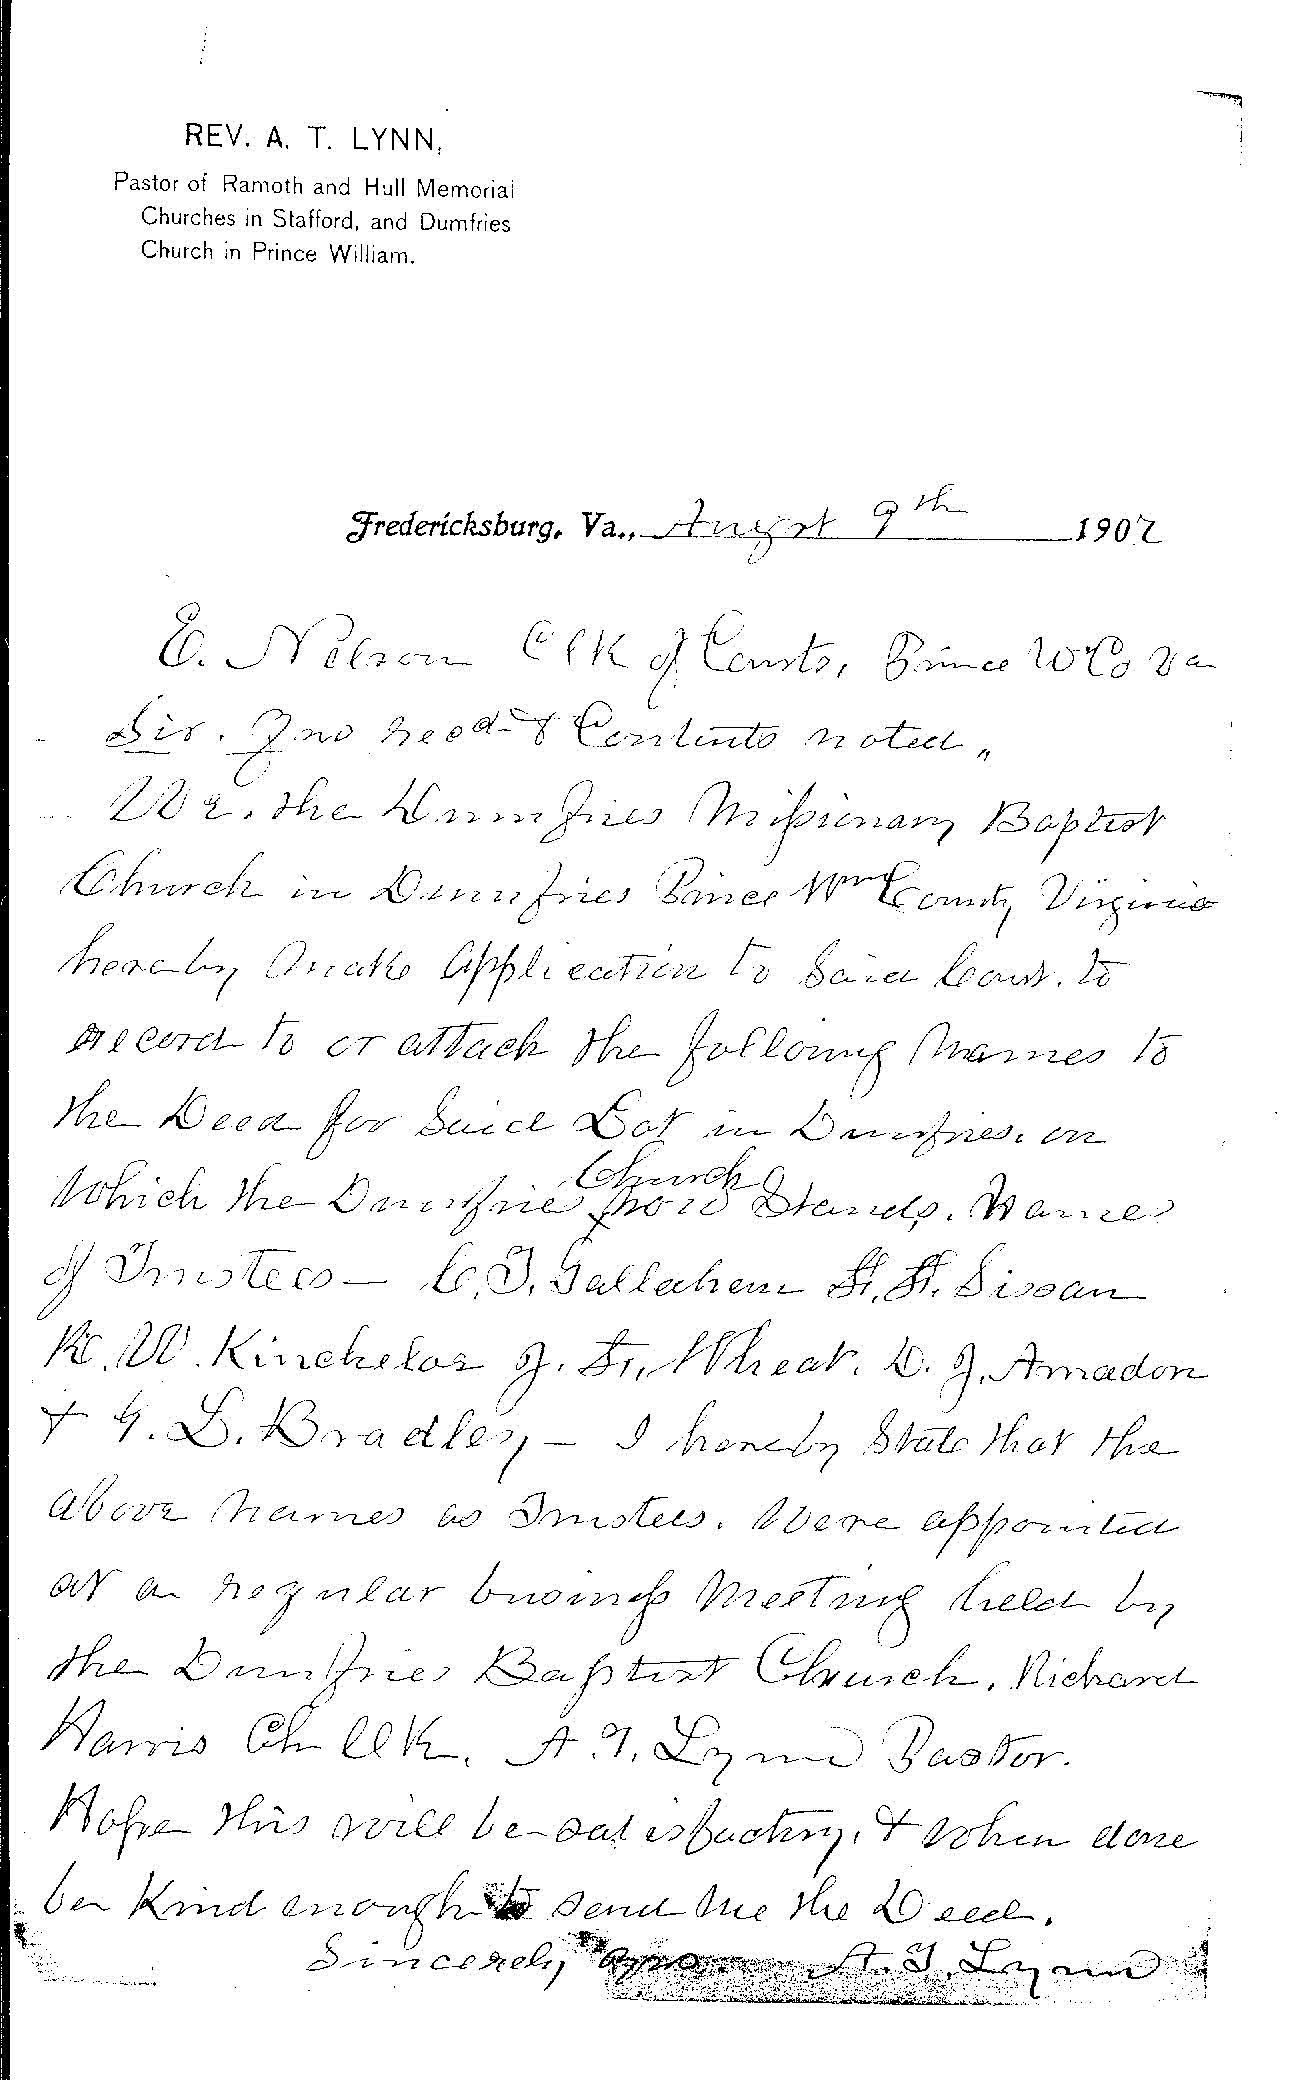 REV. A. T. LYNN,
Pastor of Ramoth and Hull Memorial
Churches in Stafford, and Dumfries
Church in Prince William.
Fredericksburg, Va., August 9th 1907
E. Nelson Clk of Courts, Prince W Co Va
Sir. Yrs recd & Contents noted.
We, the Dumfries Missionary Baptist
Church in Dumfries Prince Wm County Virginia
hereby make application to Said Court. to
record to or attach the following Names to
the Deed for Said Lot in Dumfries. on
Which the Dumfries Church now Stands. Names
of Trustees — C. T. Gallahem Sissan
K. W. Kincheloe J. Wheat. D. J. Amadon
& G. L. Bradley — I hereby State that the
above names as Trustees. Were appointed
at a regular business Meeting held by
the Dumfries Baptist Church. Richard
Harris Ch Clk. A. T. Lynn Pastor.
Hope this will be satisfactory, & when done
be Kind enough to send Me the Deed.
Sincerely yrs A. T. Lynn